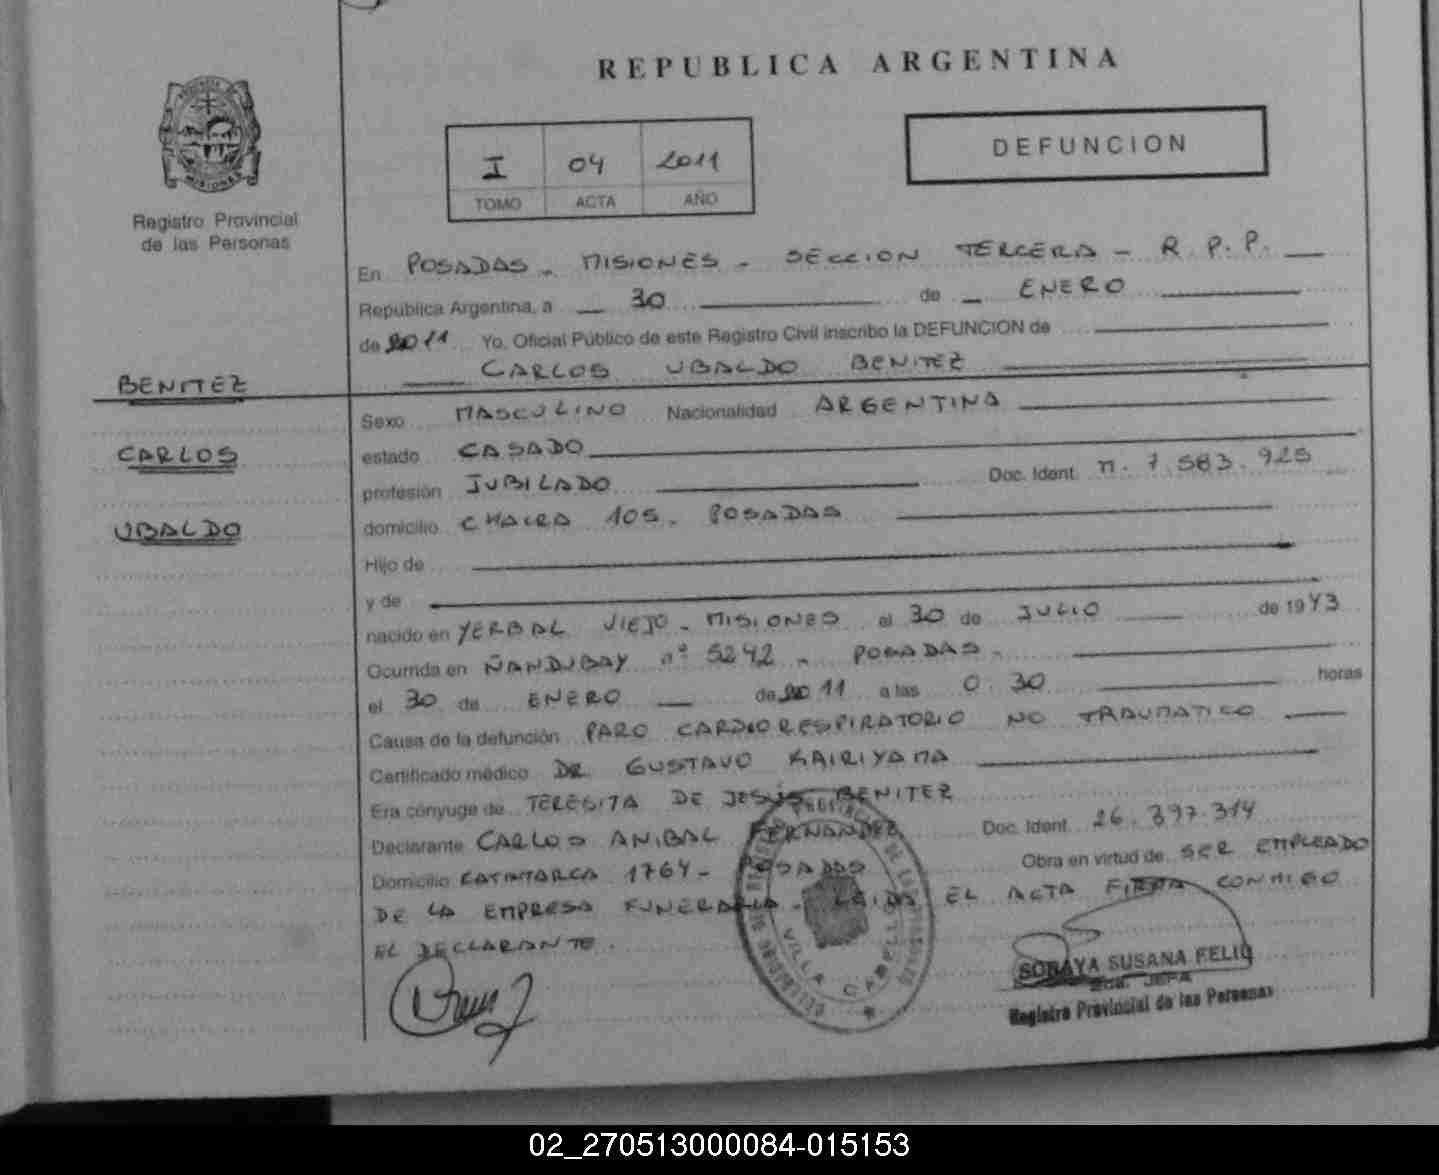 REPUBLICA ARGENTINA
DEFUNCION
I 04 2011
TOMO ACTA AÑO
MISIONES
Registro Provincial
de las Personas
En POSADAS - MISIONES - SECCION TERCERA - R. P. P.
República Argentina, a 30 de ENERO
de 2011 Yo, Oficial Público de este Registro Civil inscribo la DEFUNCION de
CARLOS UBALDO BENITEZ
BENITEZ
CARLOS
UBALDO
Sexo MASCULINO Nacionalidad ARGENTINA
estado CASADO
profesión JUBILADO Doc. Ident. n. 7.583.925
domicilio CHACRA 105. POSADAS
Hijo de
y de
nacido en YERBAL VIEJO - MISIONES el 30 de JULIO de 1943
Ocurrida en ÑANDUBAY nº 5242 - POSADAS -
el 30 de ENERO de 2011 a las 0.30 horas
Causa de la defunción PARO CARDIORESPIRATORIO NO TRAUMATICO
Certificado médico DR. GUSTAVO KAIRIYAMA
Era cónyuge de TERESITA DE JESUS BENITEZ
Declarante CARLOS ANIBAL FERNANDEZ Doc. Ident. 26.397.314
Domicilio CATAMARCA 1764 - POSADAS Obra en virtud de SER EMPLEADO
DE LA EMPRESA FUNERARIA - LEIDA EL ACTA FIRMA CONMIGO
EL DECLARANTE.
VILLA CABELLO
SORAYA SUSANA FELIU
JEFA
Registro Provincial de las Personas
02_270513000084-015153